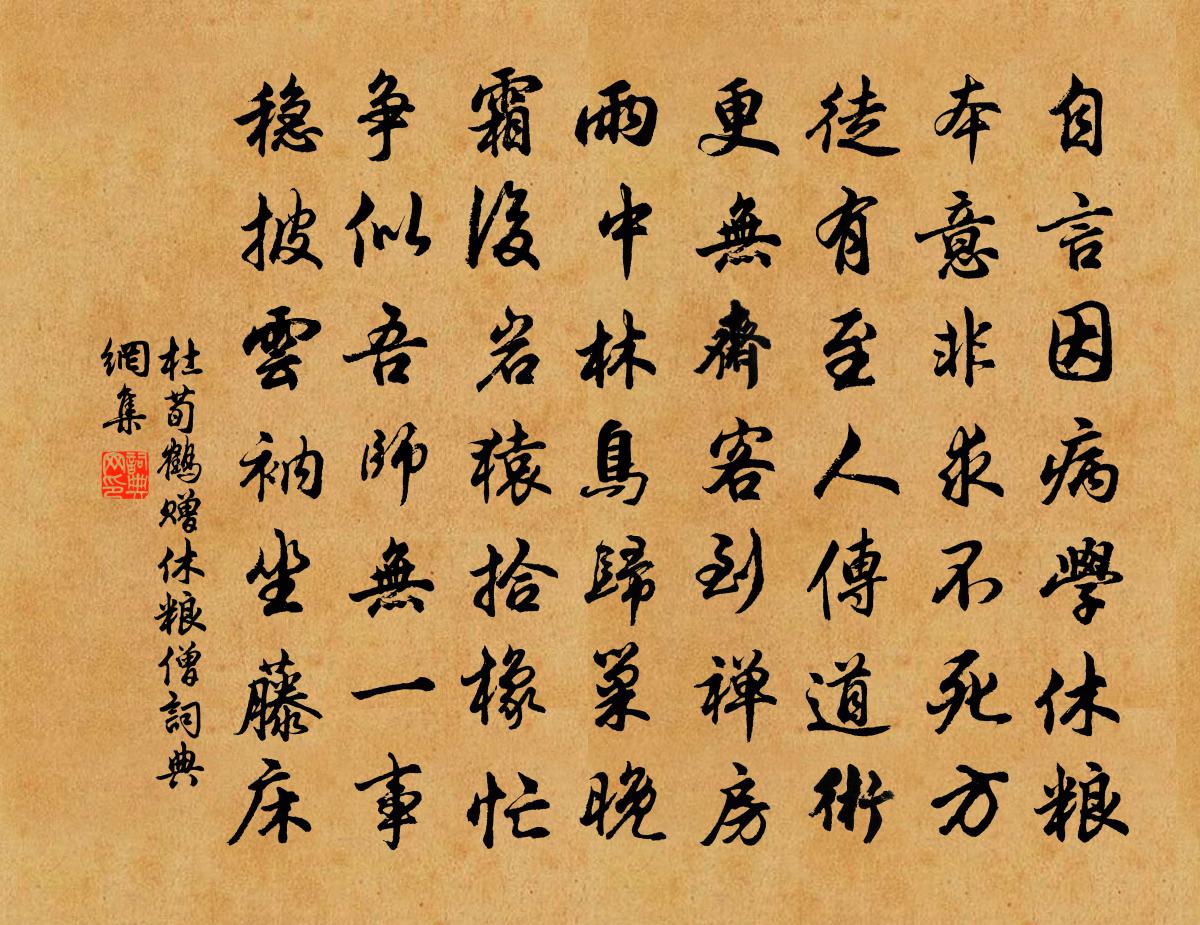 自言因病學休粮
本意非求不死方
徒有至人傳道術
更無齋客到禅房
雨中林鳥歸巢晚
霜後岩猿拾橡忙
争似吾師無一事
穏披雲衲坐藤床
杜荀鶴赠休粮僧詞典
網集
詞典
网印